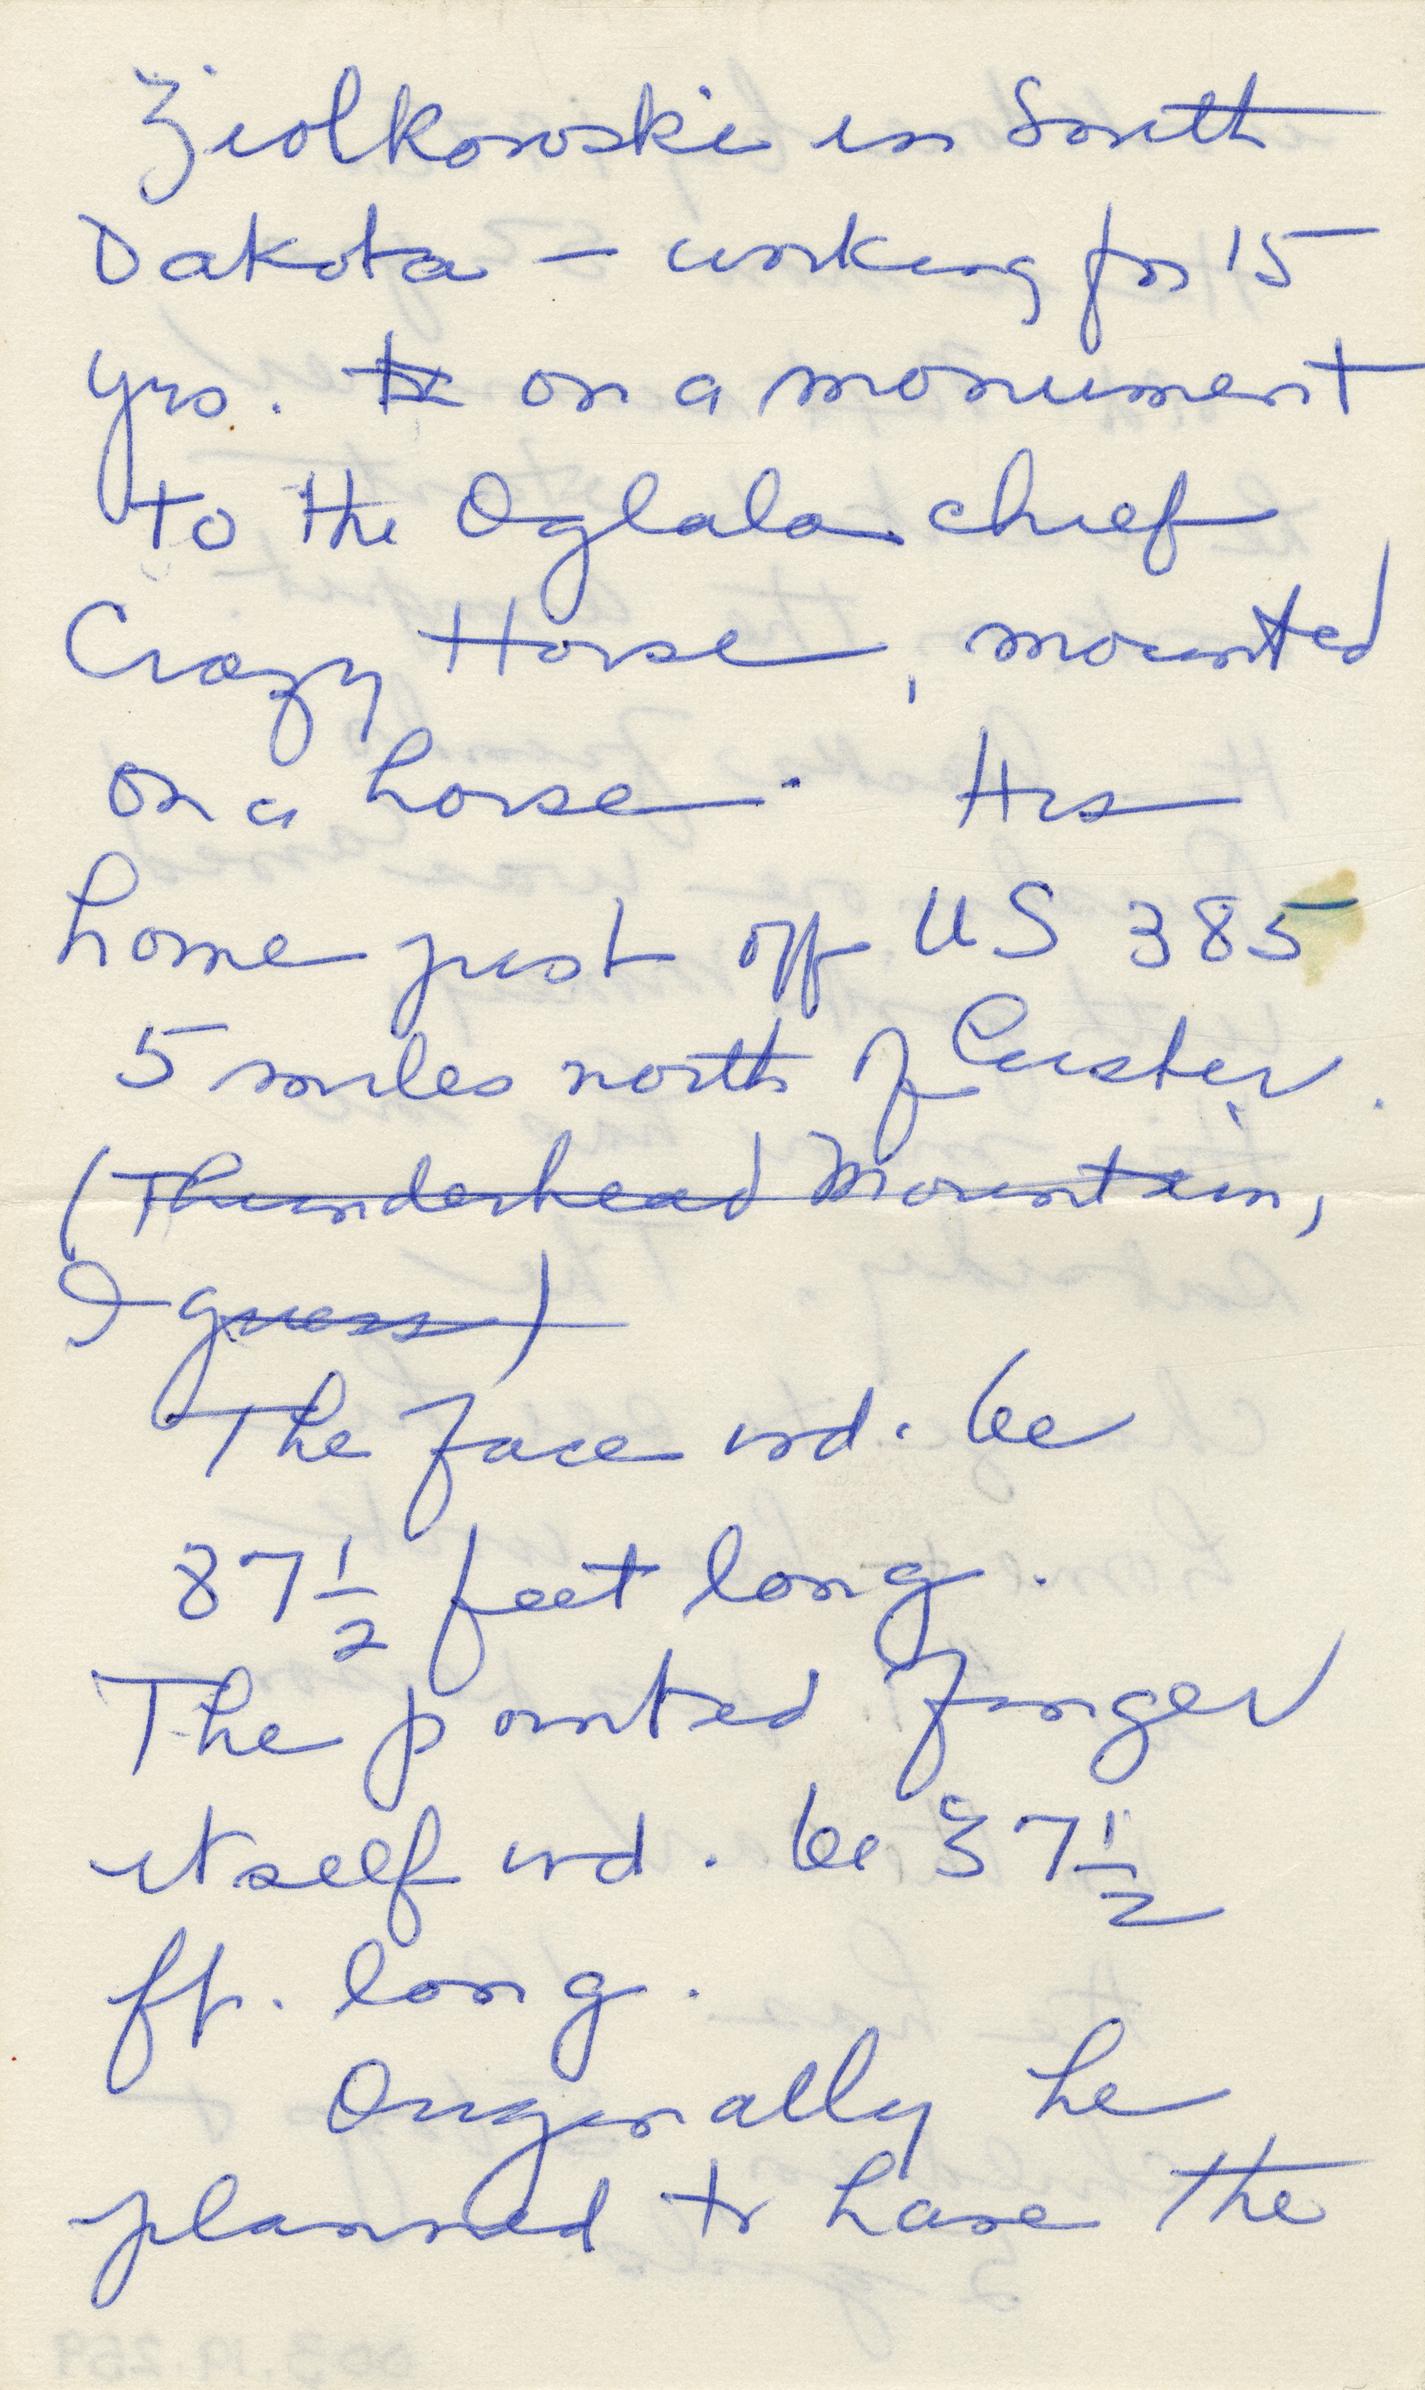 Ziolkowski in South
Dakota – working for 15
yrs. to on a monument
to the Oglala chief
Crazy Horse, mounted
on a horse. His
home just off US 385
5 miles north of Custer.
(Thunderhead Mountain,
I guess)
The face wd. be
87 1/2 feet long.
The pointed finger
itself wd. be 37 1/2
ft. long.
Originally he
planned to have the